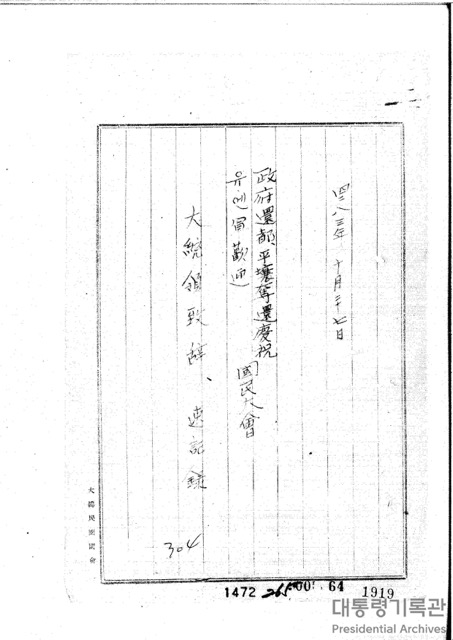 四二八三年 十月二十七日
政府還都平壤奪還慶祝
유엔軍歡迎 國民大會
大統領致辭、速記錄
304
大韓民國國會
1472
64
1919
대통령기록관
Presidential Archives